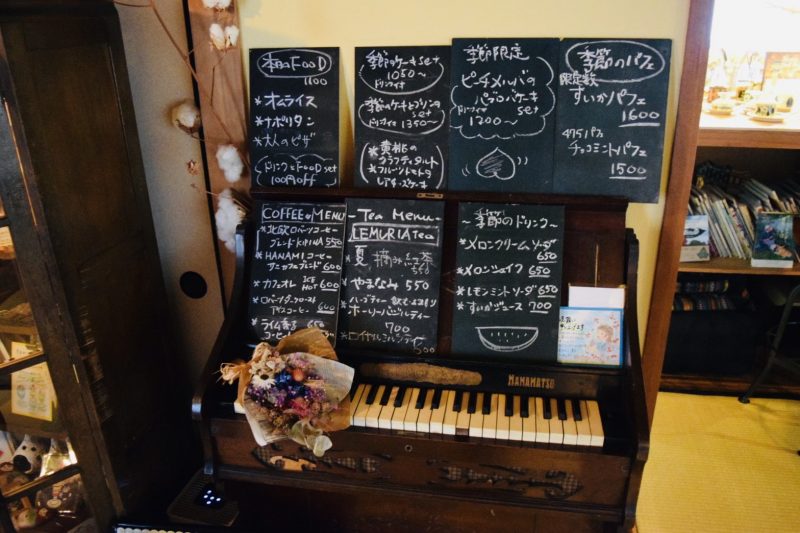 本日のFOOD
1100
*オムライス
*ナポリタン
*大人のピザ
ドリンクとFOOD set
100円OFF
季節のケーキ set
1050〜
ドリンクイオ
季節のケーキとプリンの
set
1350〜
*黄桃の
クラフティタルト
*フルーツトマトの
レアチーズケーキ
季節限定
ピーチメルバの
パブロバケーキ
set
1200〜
季節のパフェ
限定数
すいかパフェ
1600
チョコミントパフェ
1500
COFFEE MENU
*北欧ロバーツコーヒー
ブレンド 550
*HANAMIコーヒー
600
*カフェオレ ICE HOT 600
アイスコーヒー 600
650
- Tea Menu -
LEMURIA Tea
夏摘み紅茶
550
*やまなみ 550
*ハッピーティー
ホーリーバジルティー
700
*ロイヤルミルクティー
500
〜季節のドリンク〜
*メロンクリームソーダ
650
*メロンシェイク 650
*レモンミントソーダ 650
*すいかジュース 700
YAMAMATSU